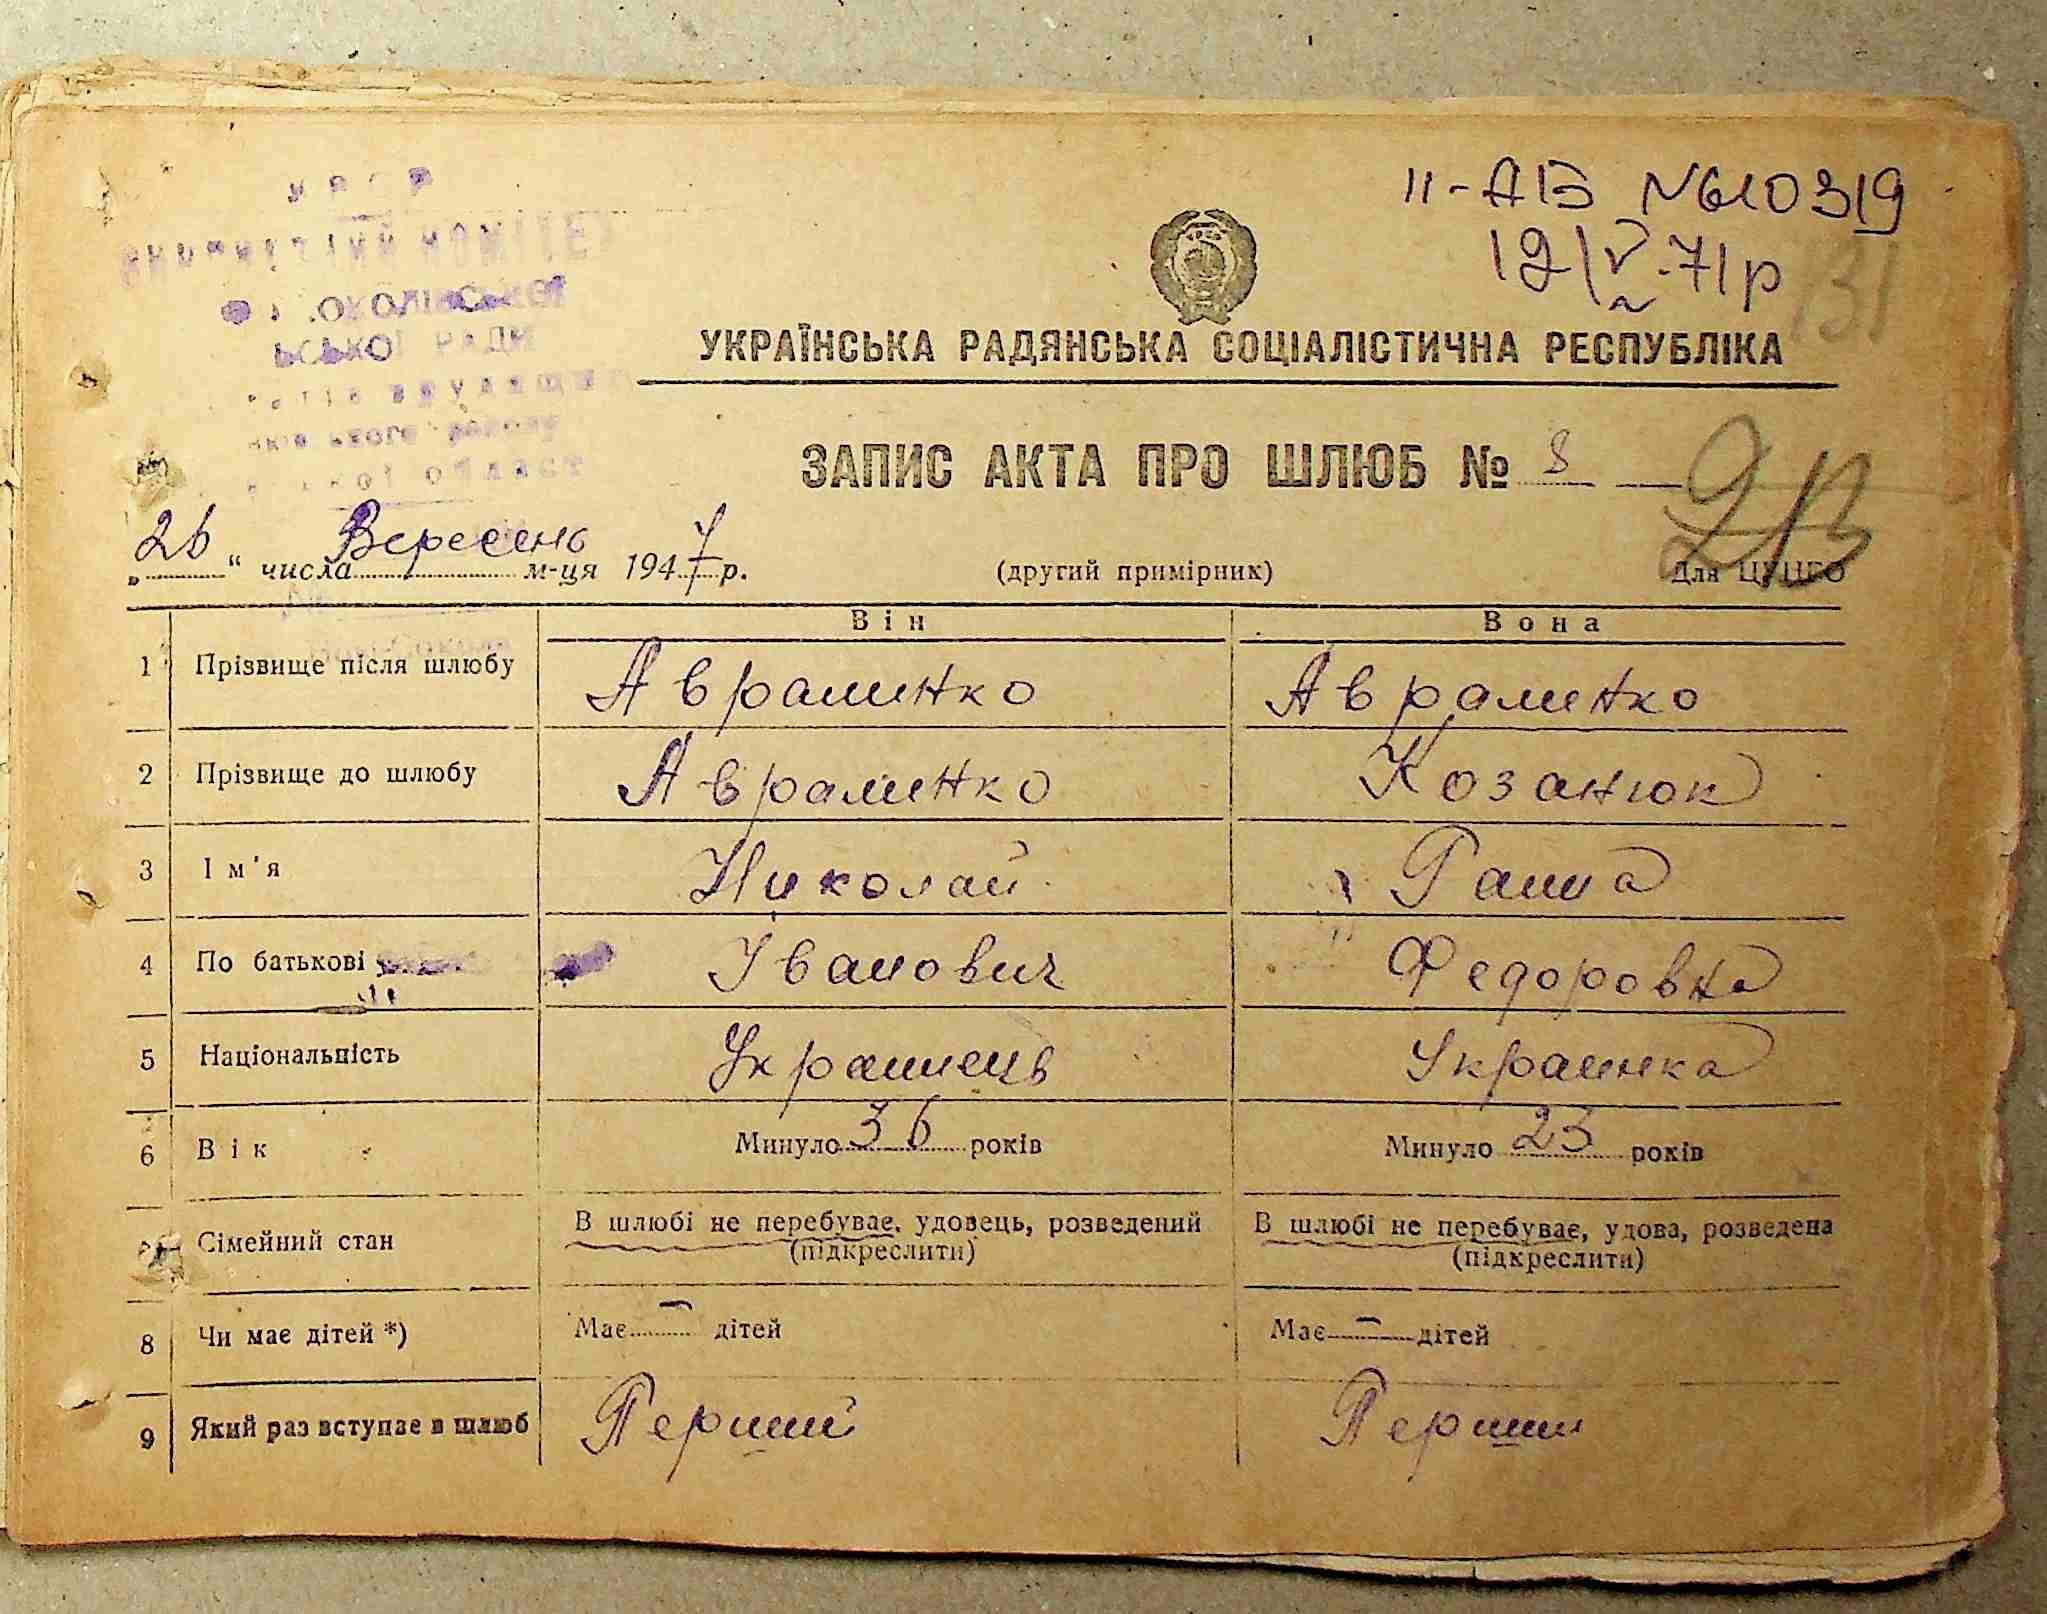 УРСР
ВИКОНАВЧИЙ КОМІТЕТ
ЬСЬКОЇ РАДИ
депутатів трудящих
району
області
II-АБ №610319
12/V-71р
131
УКРАЇНСЬКА РАДЯНСЬКА СОЦІАЛІСТИЧНА РЕСПУБЛІКА
ЗАПИС АКТА ПРО ШЛЮБ № 8
„26“ числа Вересень м-ця 1947 р. (другий примірник) Для
Він Вона
1 Прізвище після шлюбу Авраминко Авраминко
2 Прізвище до шлюбу Авраминко Козанюк
3 Ім'я Николай Ганна
4 По батькові Іванович Федоровна
5 Національність Украинець Украинка
6 Вік Минуло 36 років Минуло 23 років
Сімейний стан В шлюбі не перебуває, удовець, розведений В шлюбі не перебуває, удова, розведена
(підкреслити) (підкреслити)
8 Чи має дітей *) Має — дітей Має — дітей
9 Який раз вступає в шлюб Перший Перший